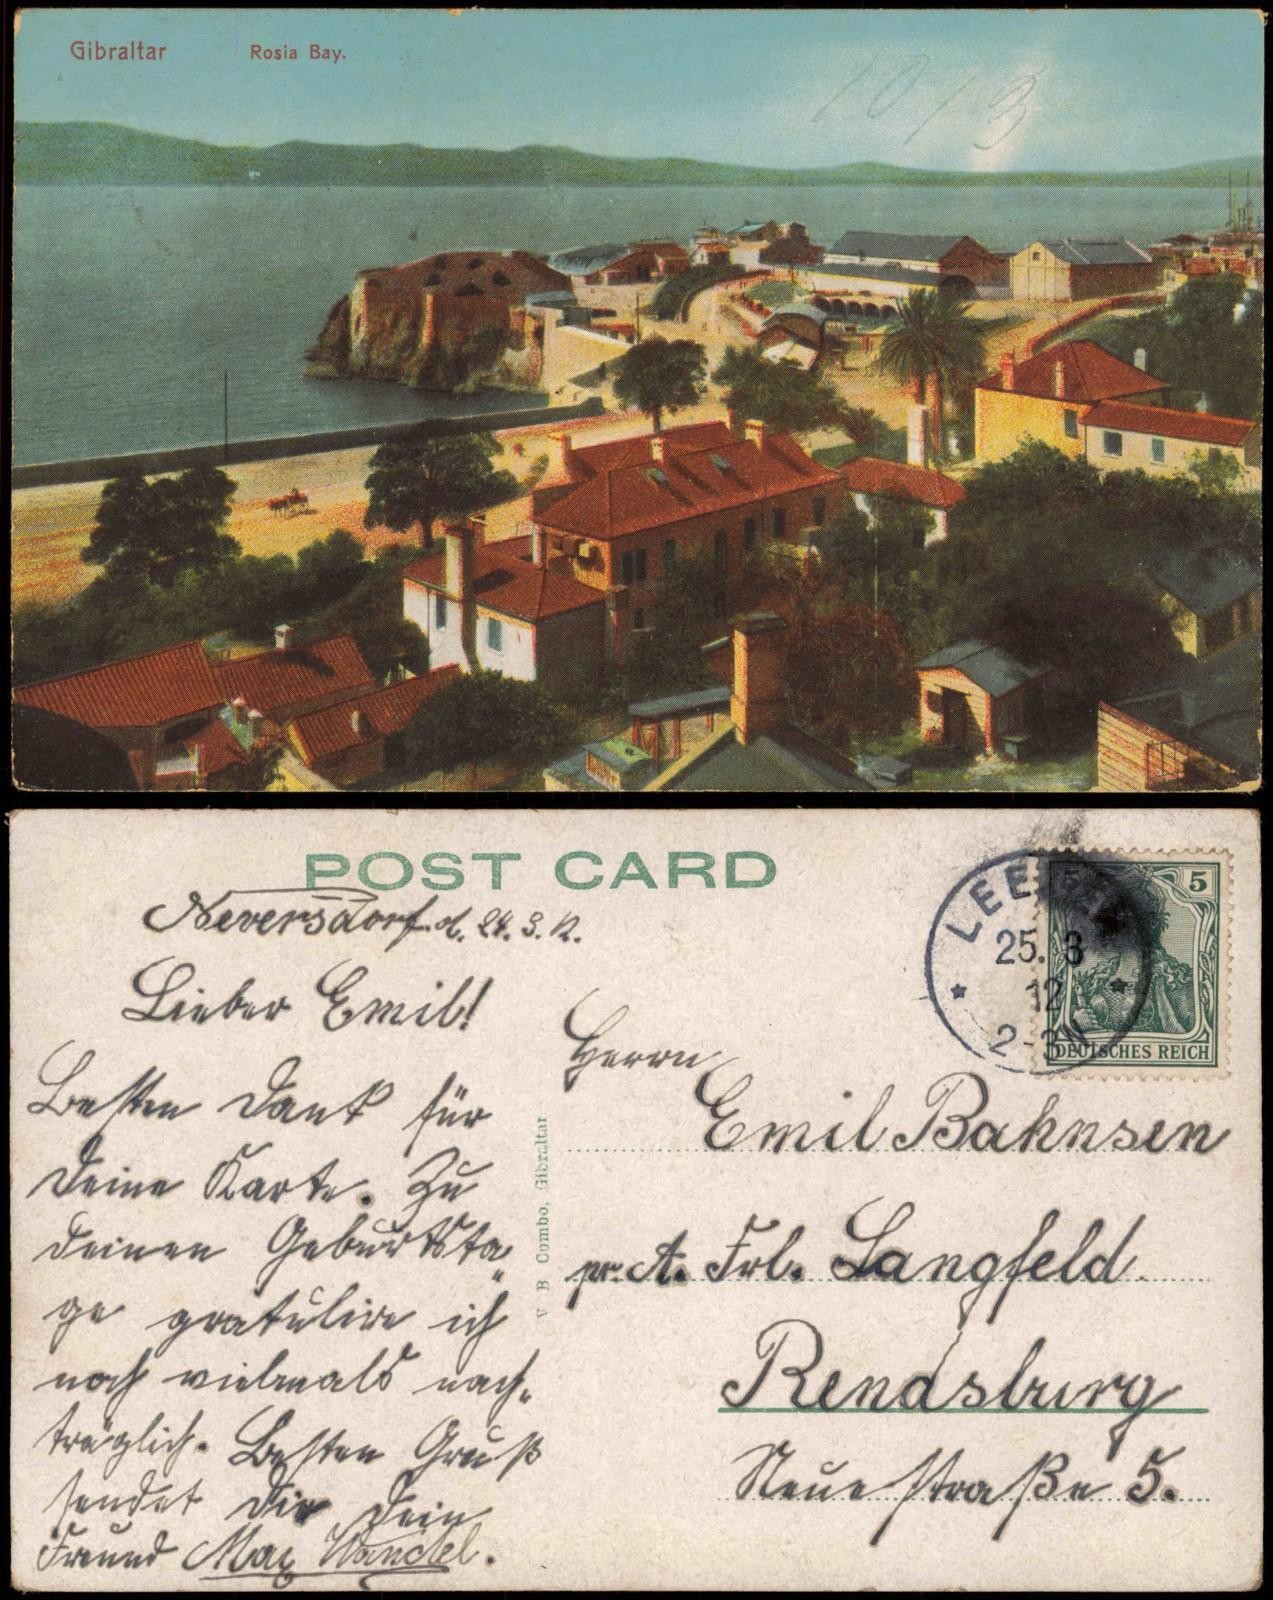 Gibraltar Rosia Bay.
1013
POST CARD
Neversdorf. d. 24. 3. 12.
Lieber Emil!
Besten Dank für
Deine Karte. Zu
Deinen Geburtsta„
ge gratulire ich
noch vielmals nach„
träglich. Besten Gruß
sendet Dir Dein
Freund Max
V B Cumbo, Gibraltar
LEEZEN
25. 3
12
2-3N
5 5
DEUTSCHES REICH
Herrn
Emil Bahnsen
pr. A. Frl. Langfeld.
Rendsburg
Neue Straße 5.